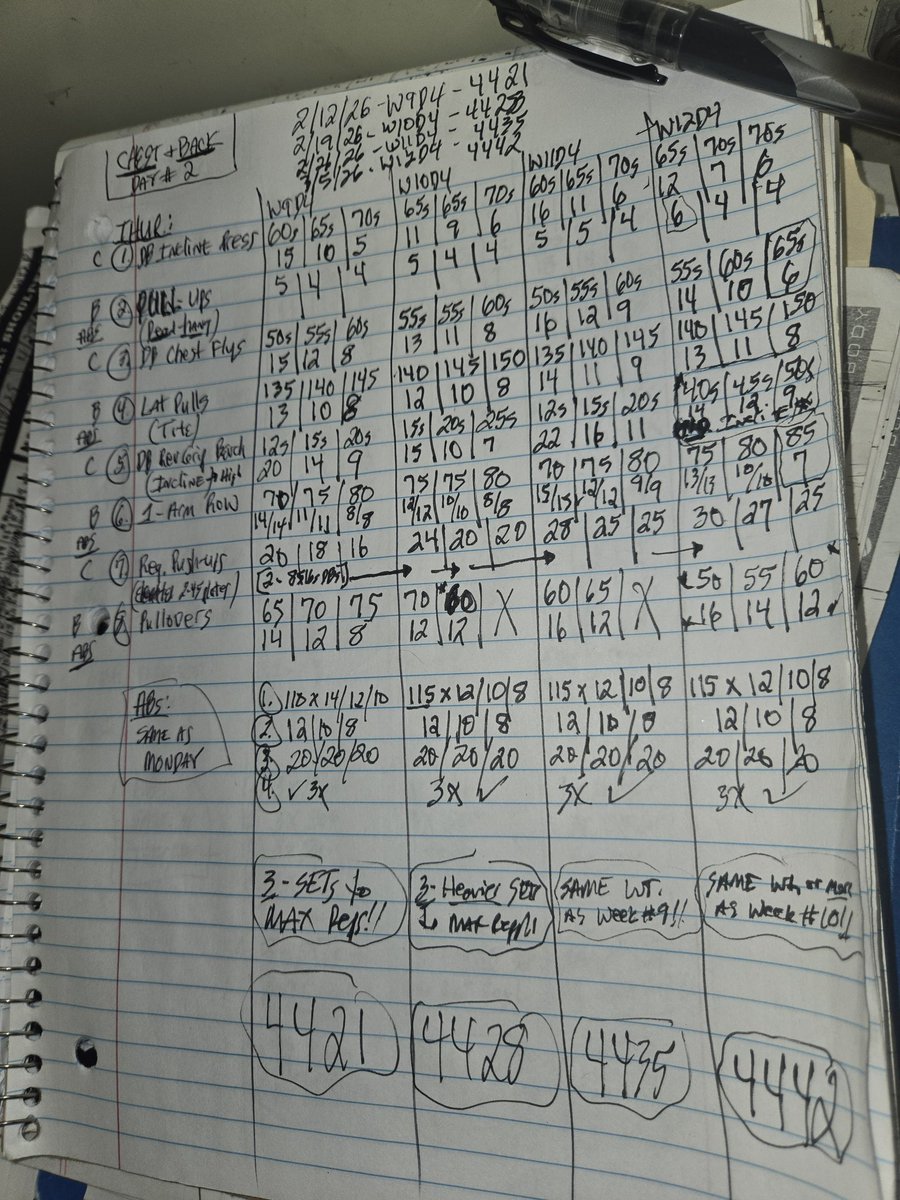 CHEST + BACK
DAY # 2
2/12/26 - W9D4 - 4421
2/19/26 - W10D4 - 4428
2/26/26 - W11D4 - 4435
3/5/26 - W12D4 - 4442
THUR: W9D4 W10D4 W11D4 W12D4
60s | 65s | 70s 65s | 65s | 70s 60s | 65s | 70s 65s | 70s | 70s
C 1 DB Incline Press 15 | 10 | 5 11 | 9 | 6 16 | 11 | 6 12 | 7 | 6
B 2 PULL-UPS 5 | 4 | 4 5 | 4 | 4 5 | 5 | 4 6 | 4 | 4
ABS (Dead-hang)
50s | 55s | 60s 55s | 55s | 60s 50s | 55s | 60s 55s | 60s | 65s
C 3 DB Chest Flys 15 | 12 | 8 13 | 11 | 8 16 | 12 | 9 14 | 10 | 6
135 | 140 | 145 140 | 145 | 150 135 | 140 | 145 140 | 145 | 150
B 4 Lat Pulls 13 | 10 | 8 12 | 10 | 8 14 | 11 | 9 13 | 11 | 8
ABS (Tite)
12s | 15s | 20s 15s | 20s | 25s 12s | 15s | 20s 40s | 45s | 50s
C 5 DB Rev Grip Bench 20 | 14 | 9 15 | 10 | 7 22 | 16 | 11 14 | 12 | 9
(Incline to High
70 | 75 | 80 75 | 75 | 80 70 | 75 | 80 75 | 80 | 85
B 6 1-Arm Row 14/14 | 11/11 | 8/8 12/12 | 10/10 | 8/8 15/15 | 12/12 | 9/9 13/13 | 10/10 | 7
ABS
C 7 Reg. Push-ups 20 | 18 | 16 24 | 20 | 20 28 | 25 | 25 30 | 27 | 25
65 | 70 | 75 70 | 60 | X 60 | 65 | X 50 | 55 | 60
B 8 Pullovers 14 | 12 | 8 12 | 12 16 | 12 16 | 14 | 12
ABS
ABS: 1. 110 x 14/12/10 115 x 12/10/8 115 x 12/10/8 115 x 12/10/8
SAME AS 2. 12/10/8 12/10/8 12/10/8 12/10/8
MONDAY 3. 20/20/20 20/20/20 20/20/20 20/20/20
4. ✓ 3X 3X ✓ 3X ✓ 3X ✓
3-SETS to
MAX Reps!!
3-Heavier SETS
MAX Reps!!
SAME WT.
AS Week #9!!
SAME Wt. or More
AS Week #10!!
4421 4428 4435 4442